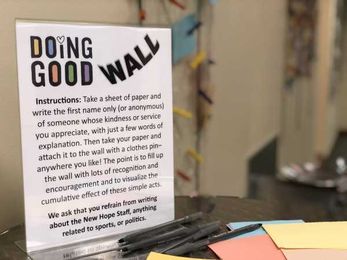 DOING
GOOD
WALL
Instructions: Take a sheet of paper and
write the first name only (or anonymous)
of someone whose kindness or service
you appreciate, with just a few words of
explanation. Then take your paper and
attach it to the wall with a clothes pin–
anywhere you like! The point is to fill up
the wall with lots of recognition and
encouragement and to visualize the
cumulative effect of these simple acts.
We ask that you refrain from writing
about the New Hope Staff, anything
related to sports, or politics.